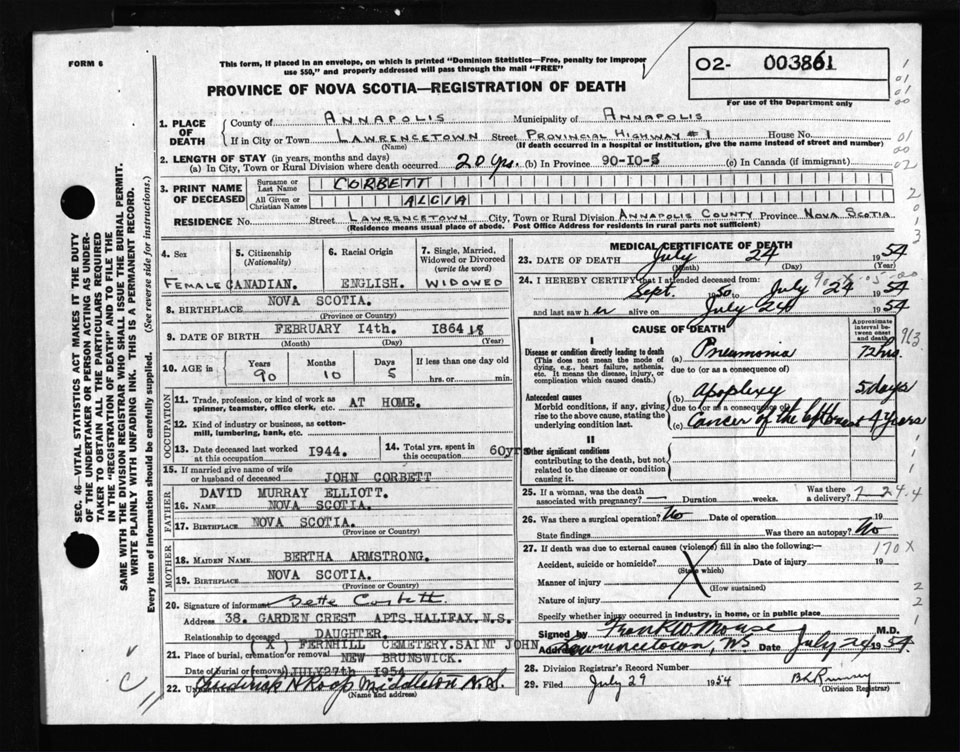 FORM 6
This form, if placed in an envelope, on which is printed "Dominion Statistics—Free, penalty for improper
use $50," and properly addressed will pass through the mail "FREE"
PROVINCE OF NOVA SCOTIA—REGISTRATION OF DEATH
02- 003861
For use of the Department only
1. PLACE OF DEATH
County of ANNAPOLIS Municipality of ANNAPOLIS
If in City or Town LAWRENCETOWN Street PROVINCIAL HIGHWAY #1 House No.
(Name) (If death occurred in a hospital or institution, give the name instead of street and number)
2. LENGTH OF STAY (in years, months and days)
(a) In City, Town or Rural Division where death occurred 20 yrs. (b) In Province 90-10-5 (c) In Canada (if immigrant)
3. PRINT NAME OF DECEASED
Surname or Last Name CORBETT
All Given or Christian Names ALCIA
RESIDENCE No. Street LAWRENCETOWN City, Town or Rural Division ANNAPOLIS COUNTY Province NOVA SCOTIA
(Residence means usual place of abode. Post Office Address for residents in rural parts not sufficient)
4. Sex FEMALE
5. Citizenship (Nationality) CANADIAN.
6. Racial Origin ENGLISH.
7. Single, Married, Widowed or Divorced (write the word) WIDOWED
8. BIRTHPLACE NOVA SCOTIA.
(Province or Country)
9. DATE OF BIRTH FEBRUARY 14th. 1864
(Month) (Day) (Year)
10. AGE in Years 90 Months 10 Days 5 If less than one day old hrs. or min.
OCCUPATION
11. Trade, profession, or kind of work as spinner, teamster, office clerk, etc. AT HOME.
12. Kind of industry or business, as cotton-mill, lumbering, bank, etc.
13. Date deceased last worked at this occupation 1944.
14. Total yrs. spent in this occupation 60yrs
15. If married give name of wife or husband of deceased JOHN CORBETT
FATHER
DAVID MURRAY ELLIOTT.
16. NAME NOVA SCOTIA.
17. BIRTHPLACE NOVA SCOTIA.
(Province or Country)
MOTHER
18. MAIDEN NAME BERTHA ARMSTRONG.
19. BIRTHPLACE NOVA SCOTIA.
(Province or Country)
20. Signature of informant Bette Corbett.
Address 38. GARDEN CREST APTS. HALIFAX, N.S.
Relationship to deceased DAUGHTER.
21. Place of burial, cremation or removal ( X ) FERNHILL CEMETERY. SAINT JOHN
NEW BRUNSWICK.
Date of burial or removal JULY 27th 1954
22. Frederick N Roop Middleton N.S.
(Name and address)
MEDICAL CERTIFICATE OF DEATH
23. DATE OF DEATH July 24 1954
(Month) (Day) (Year)
24. I HEREBY CERTIFY that I attended deceased from
Sept. 1950 to July 24 1954
and last saw her alive on July 24 1954
CAUSE OF DEATH
Approximate interval between onset and death
I
Disease or condition directly leading to death
(This does not mean the mode of dying, e.g., heart failure, asthenia, etc. It means the disease, injury, or complication which caused death.)
(a) Pneumonia 72 hrs.
due to (or as a consequence of)
Antecedent causes
Morbid conditions, if any, giving rise to the above cause, stating the underlying condition last.
(b) Apoplexy 5 days
due to (or as a consequence of)
(c) Cancer of the left breast 4 years
II
Other significant conditions
contributing to the death, but not related to the disease or condition causing it.
25. If a woman, was the death associated with pregnancy? — Duration weeks. Was there a delivery?
26. Was there a surgical operation? No Date of operation 19
State findings Was there an autopsy? No
27. If death was due to external causes (violence) fill in also the following:—
Accident, suicide or homicide? Date of injury 19
(State which)
Manner of injury
(How sustained)
Nature of injury
Specify whether injury occurred in industry, in home, or in public place
170 X
Signed by Frank W Morse M.D.
Lawrencetown, NS Date July 24 1954
28. Division Registrar's Record Number
29. Filed July 29 1954
(Division Registrar)
SEC. 46—VITAL STATISTICS ACT MAKES IT THE DUTY
OF THE UNDERTAKER OR PERSON ACTING AS UNDER-
TAKER TO OBTAIN ALL THE PARTICULARS REQUIRED
IN THE "REGISTRATION OF DEATH" AND TO FILE THE
SAME WITH THE DIVISION REGISTRAR WHO SHALL ISSUE THE BURIAL PERMIT.
WRITE PLAINLY WITH UNFADING INK. THIS IS A PERMANENT RECORD.
Every item of information should be carefully supplied. (See reverse side for instructions.)